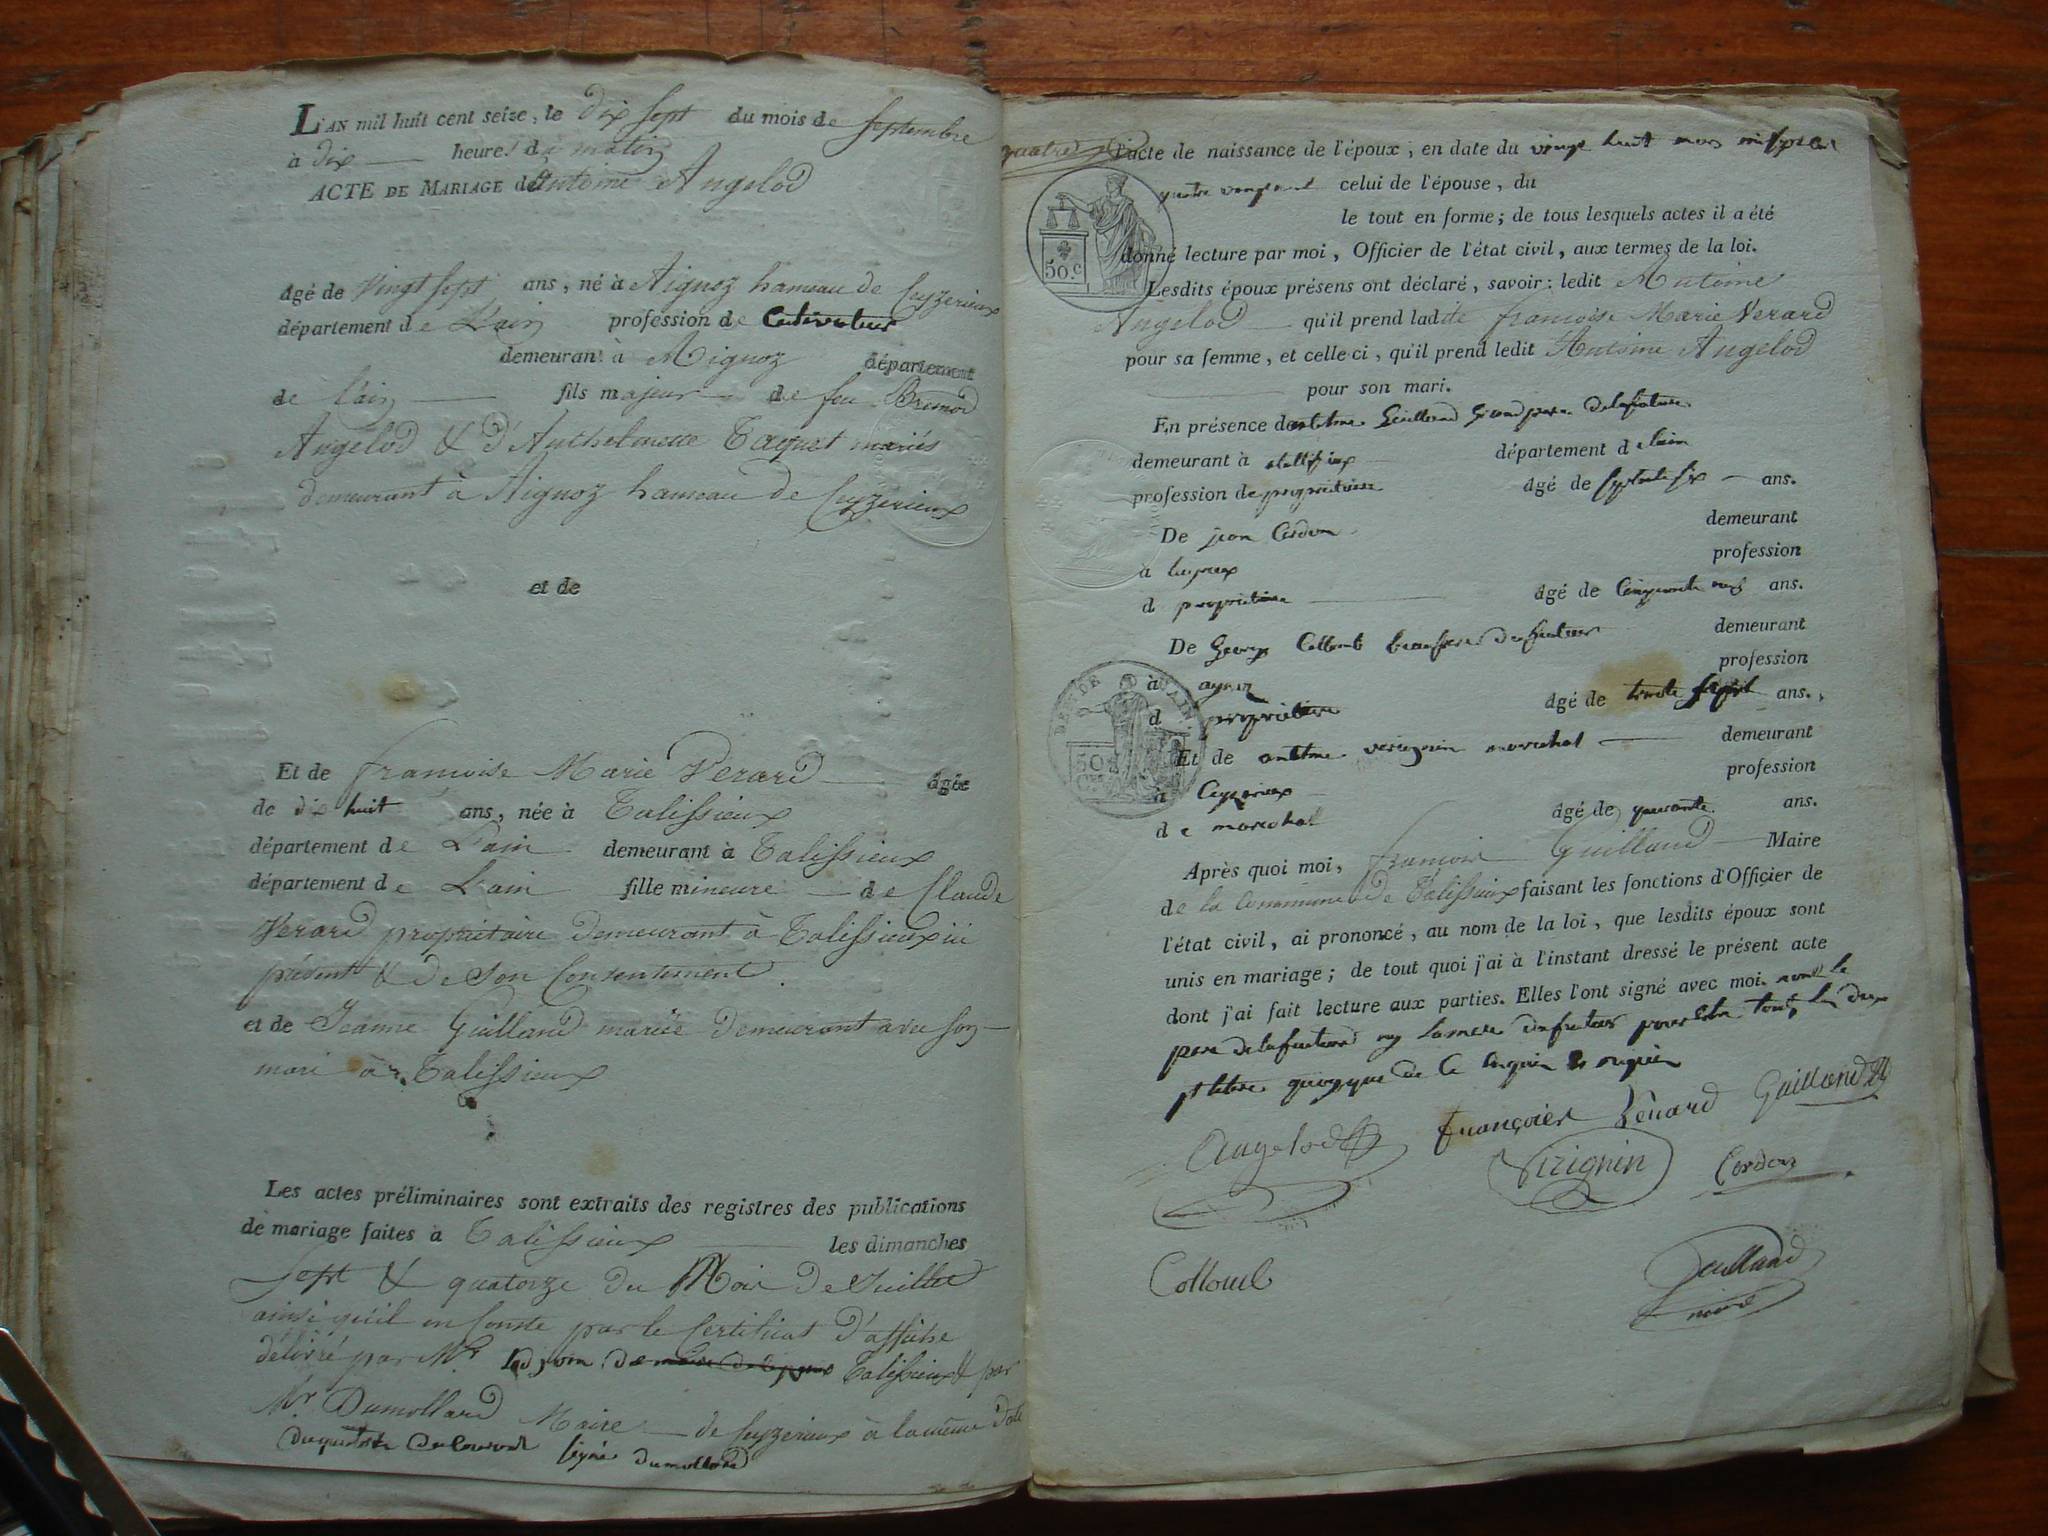 L'AN mil huit cent seize, le dix sept du mois de septembre
à dix heures du matin
ACTE DE MARIAGE de Antoine Angelod
âgé de Vingt sept ans, né à Aignoz hameau de Ceyzerieux
département de L'ain profession de Cultivateur
demeurant à Aignoz département
de l'ain fils majeur de feu
Angelod & d'Anthelmette Taquet mariés
demeurant à Aignoz hameau de Ceyzerieux
et de
Et de françoise Marie Verard âgée
de dix huit ans, née à Talissieux
département de L'ain demeurant à Talissieux
département de L'ain fille mineure de Claude
Verard propriétaire demeurant à Talissieux ici
présent & de son Consentement
et de Jeanne Guilland mariée demeurant avec son
mari à Talissieux
Les actes préliminaires sont extraits des registres des publications
de mariage faites à Talissieux les dimanches
Sept & quatorze du Mois de Juillet
ainsi qu'il en Conste par le Certificat d'affiche
délivré par Mr Talissieux & par
Mr Dumollard Maire de Ceyzerieux à la même date
du quatorze du Courant signé Dumollard
l'acte de naissance de l'époux, en date du vingt huit mars
quatre vingt celui de l'épouse, du
le tout en forme; de tous lesquels actes il a été
donné lecture par moi, Officier de l'état civil, aux termes de la loi.
50.c
Lesdits époux présens ont déclaré, savoir: ledit Antoine
Angelod qu'il prend ladite françoise Marie Verard
pour sa femme, et celle ci, qu'il prend ledit Antoine Angelod
pour son mari.
En présence de Guilland Grand père
demeurant à département de lain
profession de propriétaire âgé de ans.
De jean Cordon demeurant
à profession
d propriétaire âgé de Cinquante ans.
De George demeurant
à profession
d propriétaire âgé de trente ans.
Et de marechal demeurant
à Ceyzerieux profession
de marechal âgé de quarante ans.
Après quoi moi, françois Guilland Maire
de la Commune de Talissieux faisant les fonctions d'Officier de
l'état civil, ai prononcé, au nom de la loi, que lesdits époux sont
unis en mariage; de tout quoi j'ai à l'instant dressé le présent acte
dont j'ai fait lecture aux parties. Elles l'ont signé avec moi non le
père
quoyque de ce
Angelod françoise Vérard Guilland
Virignin Cordon
Guilland
maire